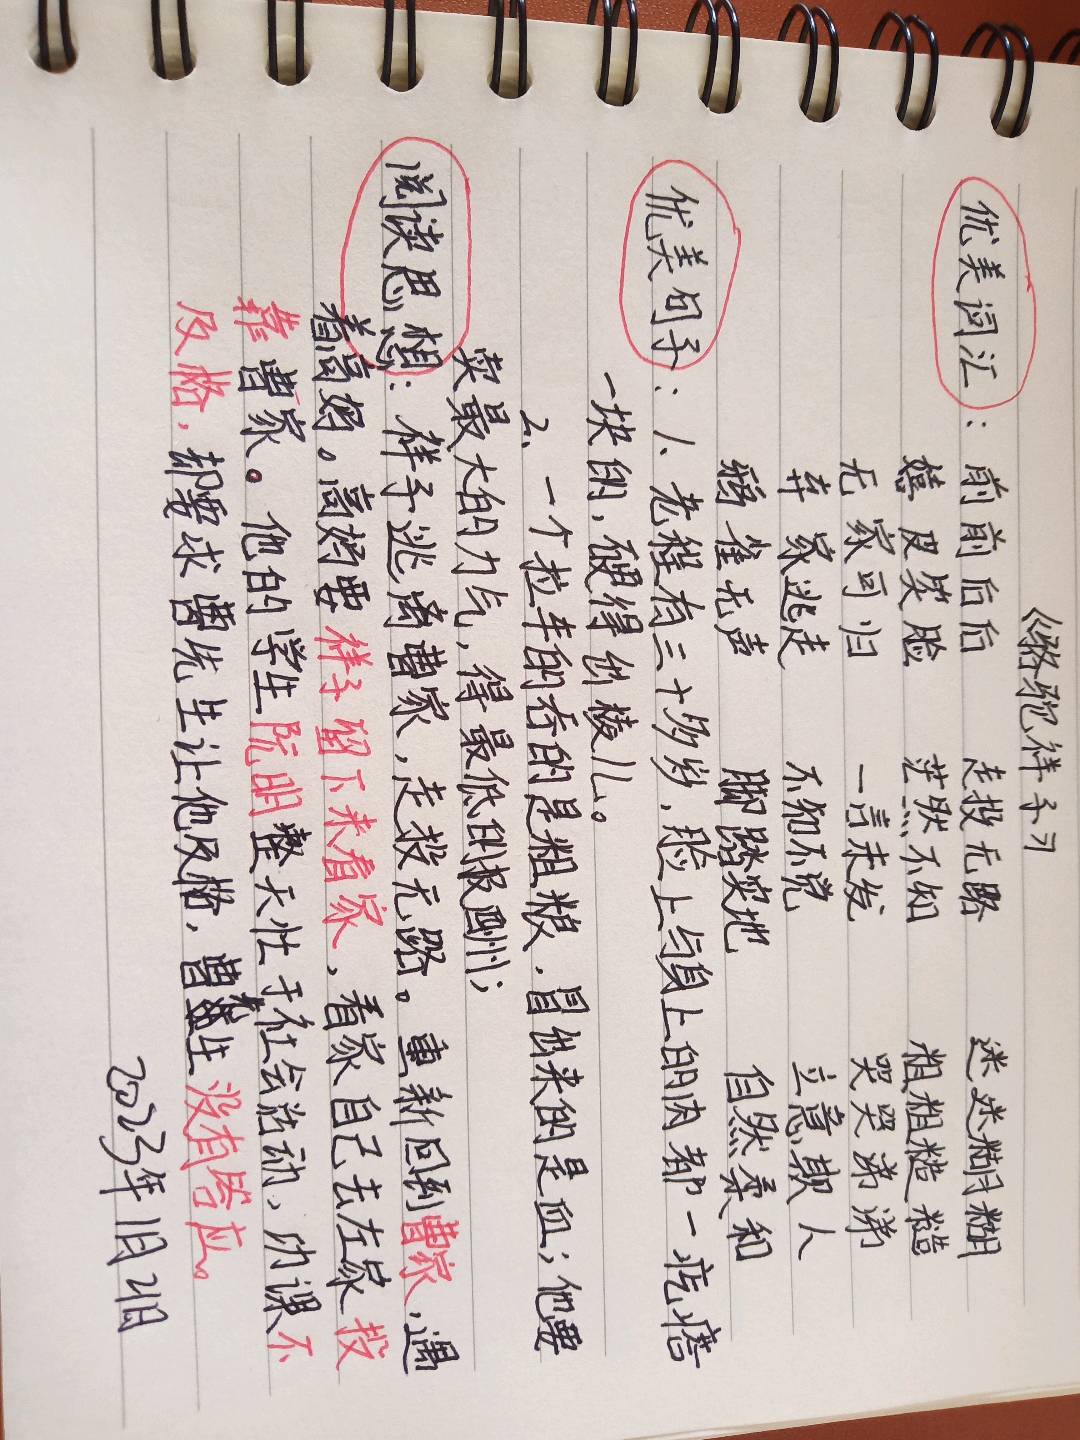 《骆驼祥子》
优美词汇：前前后后 走投无路 迷迷糊糊
嬉皮笑脸 茫然不知 粗粗糙糙
无家可归 一言未发 哭哭涕涕
弃家逃走 不知不说 立意欺人
鸦雀无声 脚踏实地 自然柔和
优美句子：1、老程有三十多岁，脸上与身上的肉都一疙瘩
一块的，硬得出棱儿。
2、一个拉车的吞的是粗粮，冒出来的是血；他要
卖最大的力气，得最低的报酬；
阅读思想：祥子逃离曹家，走投无路。重新回到曹家，遇
着高妈。高妈要祥子留下来看家，看家自己去左家投
靠曹家。他的学生阮明整天忙于社会活动，功课不
及格，却要求曹先生让他及格，曹先生没有答应。
2023年1月21日